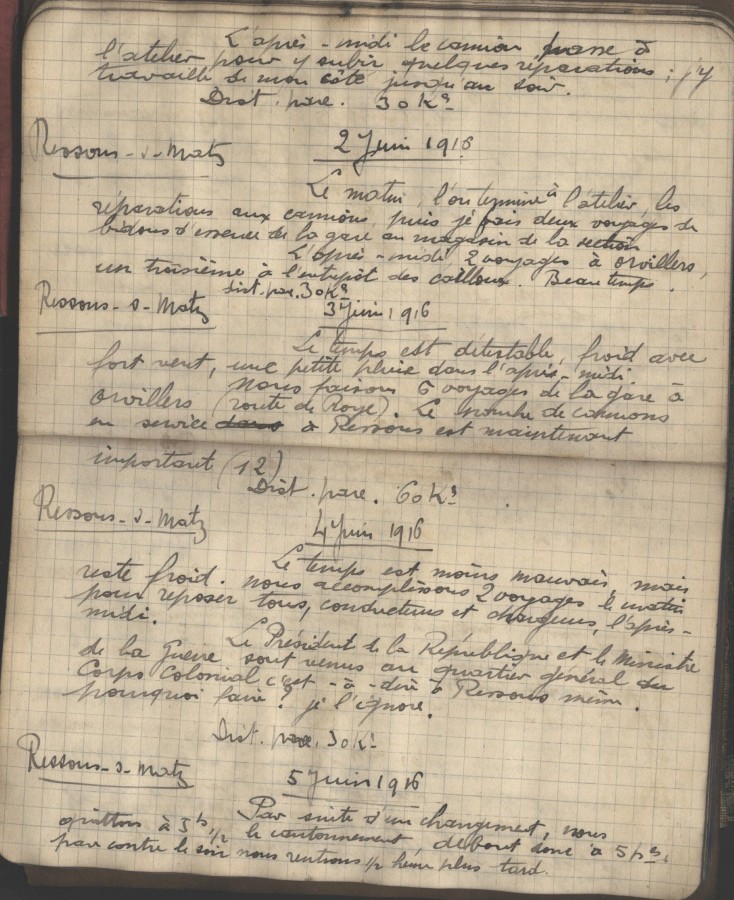 L'après-midi le camion passe à
l'atelier pour y subir quelques réparations ; j'y
travaille de mon côté jusqu'au soir.
Dist. parc. 30 Ks
Ressons-s-Matz
2 Juin 1916
Le matin, l'on termine à l'atelier, les
réparations aux camions, puis je fais deux voyages de
bidons d'essence de la gare au magasin de la section
L'après-midi, 2 voyages à Orvillers,
un troisième à l'entrepôt des cailloux. Beau temps.
Dist. parc. 30 Ks
Ressons-s-Matz
3 Juin 1916
Le temps est détestable, froid avec
fort vent, une petite pluie dans l'après-midi.
Nous faisons 6 voyages de la gare à
Orvillers (route de Roye). Le nombre de camions
en service dans à Ressons est maintenant
important (12)
Dist. parc. 60 Ks
Ressons-s-Matz
4 Juin 1916
Le temps est moins mauvais, mais
reste froid. Nous accomplissons 2 voyages le matin
pour reposer tous, conducteurs et chargeurs, l'après-
midi.
Le Président de la République et le Ministre
de la Guerre sont venus au quartier général du
Corps Colonial c'est-à-dire à Ressons même.
pourquoi faire ? je l'ignore.
Dist. parc. 30 Ks
Ressons-s-Matz
5 Juin 1916
Par suite d'un changement, nous
quittons à 5h 1/2 le cantonnement, debout donc à 5 hs,
par contre le soir nous rentrons 1/2 heure plus tard.